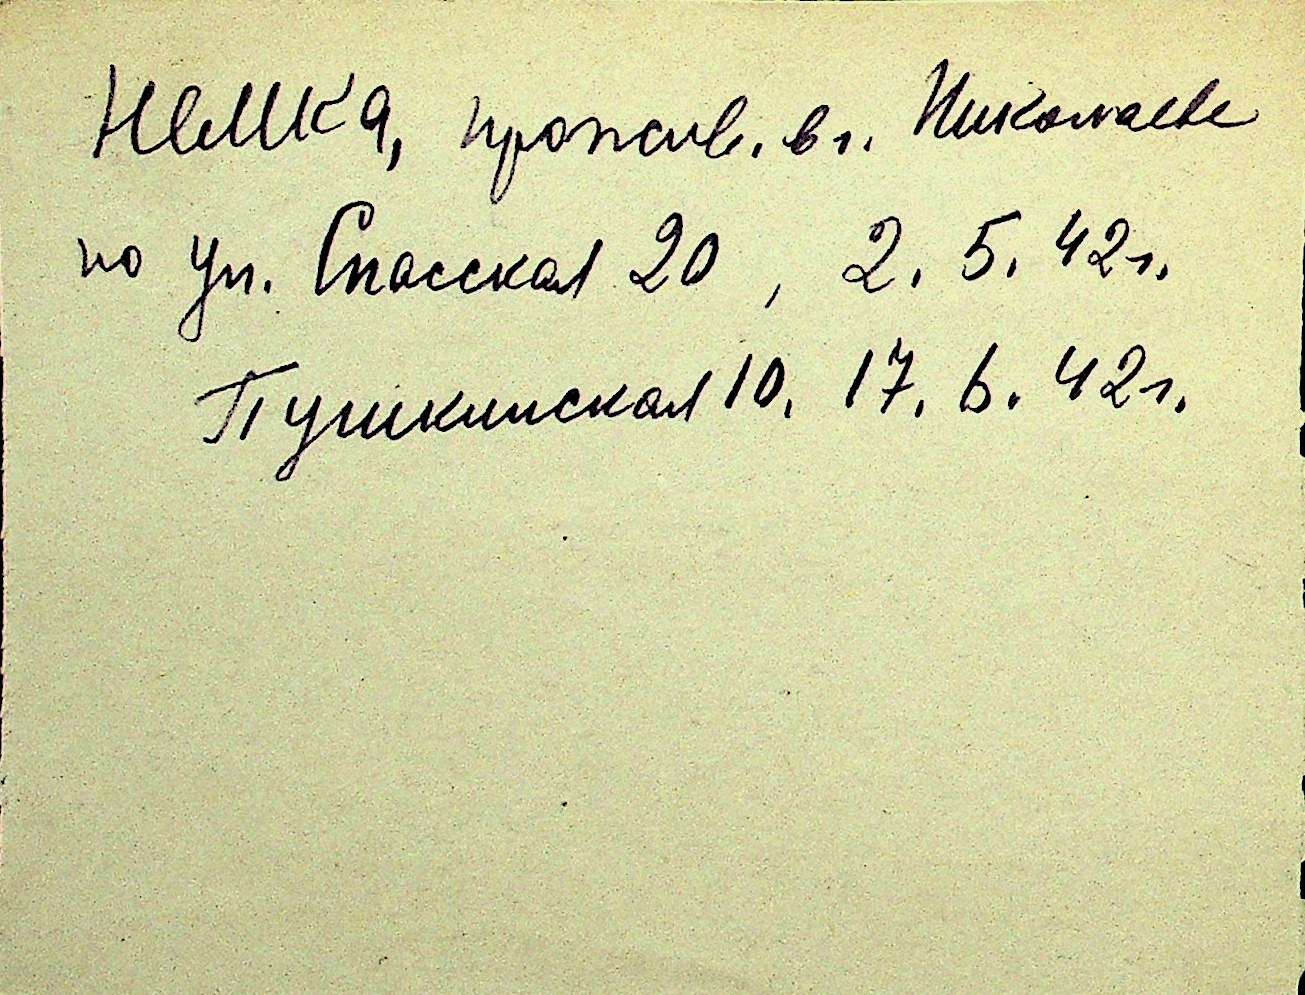 Немка, прожив. в г. Николаеве
по ул. Спасская 20, 2. 5. 42г.
Пушкинская 10. 17. 6. 42г.